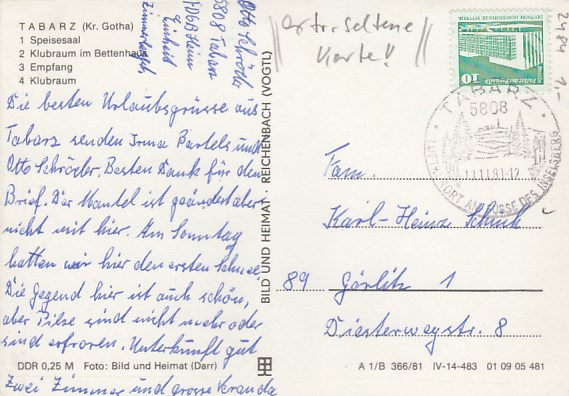 TABARZ (Kr. Gotha)
1 Speisesaal
2 Klubraum im Bettenhaus
3 Empfang
4 Klubraum
Die besten Urlaubsgrüsse aus
Tabarz senden Irma Bartels und
Otto Schröder. Besten Dank für den
Brief. Der Mantel ist geändert aber
nicht mit hier. Am Sonntag
hatten wir hier den ersten Schnee.
Die Gegend hier ist auch schön,
aber Pilze sind nicht mehr oder
sind erfroren. Unterkunft gut
Zwei Zimmer und grosse Veranda
DDR 0,25 M Foto: Bild und Heimat (Darr)
Otto Schröder
5808 Tabarz
Einheit
BILD UND HEIMAT · REICHENBACH (VOGTL)
seltene
Karte!
10
TABARZ
5808
11.11.81-12
AM FUSSE DES INSELSBERG
Fam.
Karl-Heinz
89 Görlitz 1
Diesterwegstr. 8
A 1/B 366/81 IV-14-483 01 09 05 481